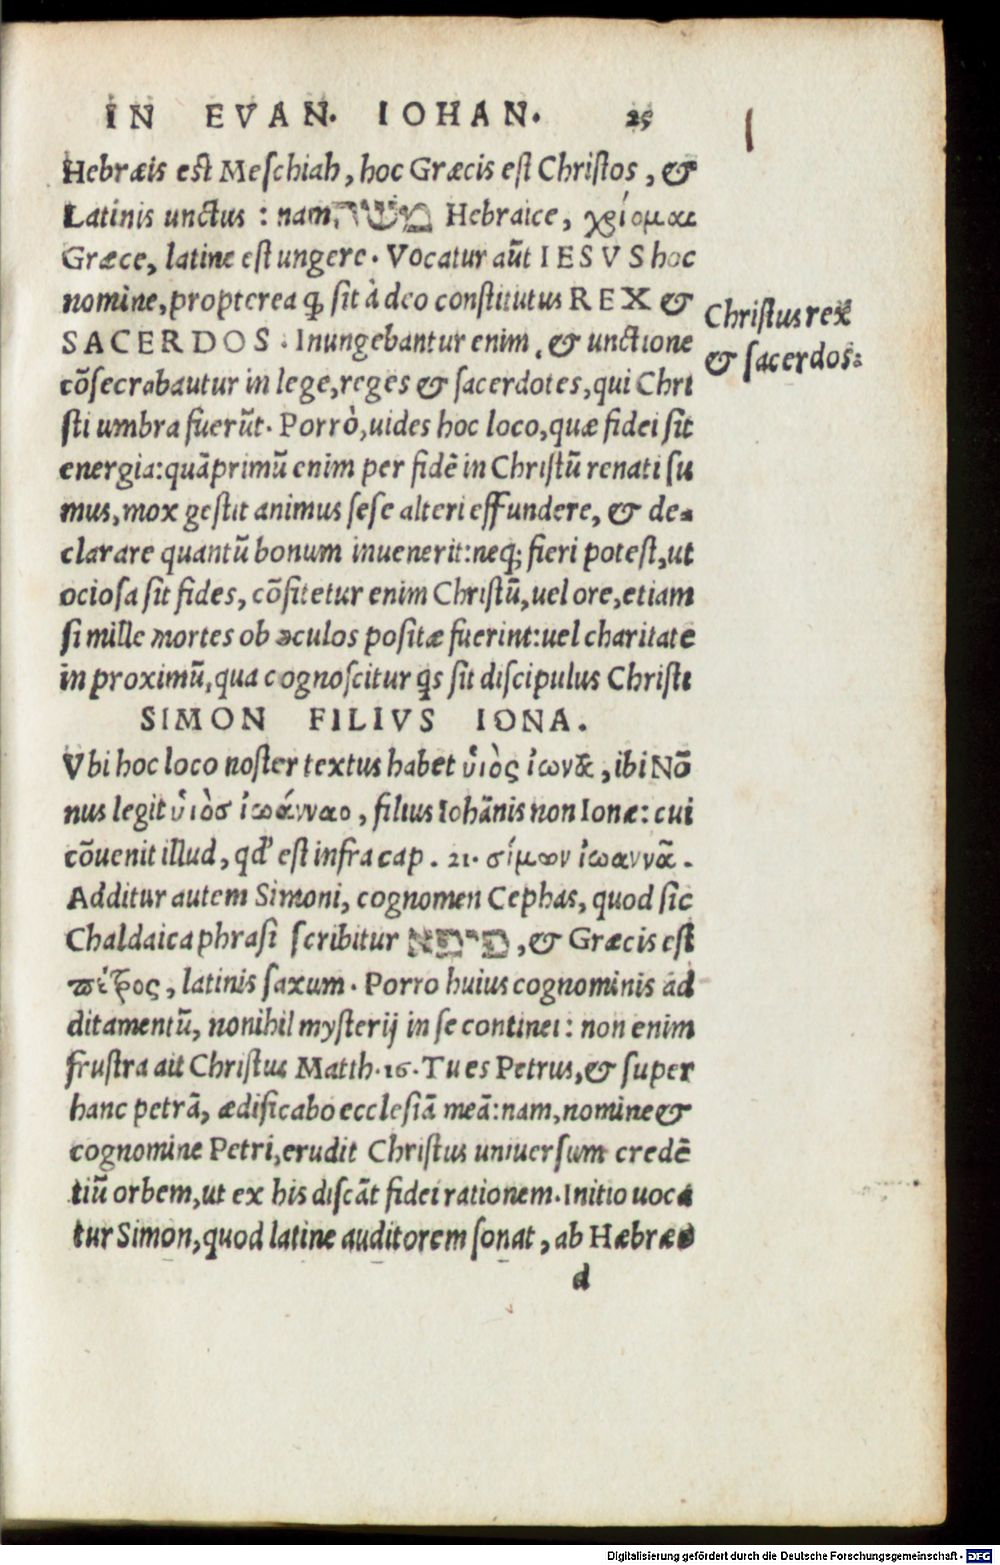 IN EVAN. IOHAN. 25
Hebræis est Meſchiah, hoc Græcis eſt Chriſtos, &
Latinis unctus : nam משה Hebraice, χρίομαι
Græce, latine eſt ungere. Vocatur aũt IESVS hoc
nomine, propterea ꝙ ſit à deo conſtitutus REX &
SACERDOS. Inungebantur enim, & unctione
cõſecrabautur in lege, reges & ſacerdotes, qui Chri
ſti umbra fuerũt. Porrò, uides hoc loco, quæ fidei ſit
energia: quãprimũ enim per fidẽ in Chriſtũ renati ſu
mus, mox geſtit animus ſeſe alteri effundere, & de-
clarare quantũ bonum inuenerit: neq; fieri poteſt, ut
ocioſa ſit fides, cõfitetur enim Chriſtũ, uel ore, etiam
ſi mille mortes ob oculos poſitæ fuerint: uel charitate
in proximũ, qua cognoſcitur q̃s ſit diſcipulus Chriſti
Chriſtus rex
& ſacerdos.
SIMON FILIVS IONA.
Vbi hoc loco noſter textus habet ὑιὸς ἰωνᾶ, ibi Nõ
nus legit ὑιὸσ ἰωάνναο, filius Iohãnis non Ionæ: cui
cõuenit illud, qd' eſt infra cap. 21. σίμων ἰωαννᾶ.
Additur autem Simoni, cognomen Cephas, quod ſic
Chaldaica phraſi ſcribitur כיפא, & Græcis eſt
πέτρος, latinis ſaxum. Porro huius cognominis ad
ditamentũ, nonihil myſterij in ſe continet: non enim
fruſtra ait Chriſtus Matth. 16. Tu es Petrus, & ſuper
hanc petrã, ædificabo eccleſiã meã: nam, nomine &
cognomine Petri, erudit Chriſtus uniuerſum credẽ
tiũ orbem, ut ex his diſcãt fidei rationem. Initio uoca
tur Simon, quod latine auditorem ſonat, ab Hæbræo
d
Digitalisierung gefördert durch die Deutsche Forschungsgemeinschaft - DFG